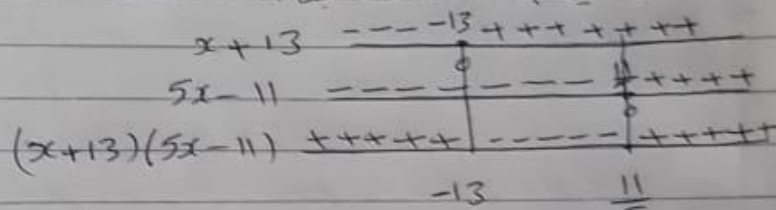 x+13 ---- -13 +++ ++ ++
5x-11 -------- ++++
(x+13)(5x-11) +++++ ------ +++++
-13 11